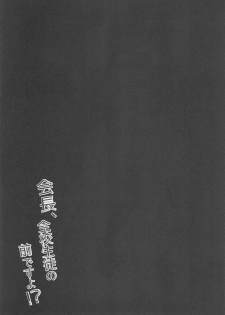 会長、全校生徒の
前ですよ!?